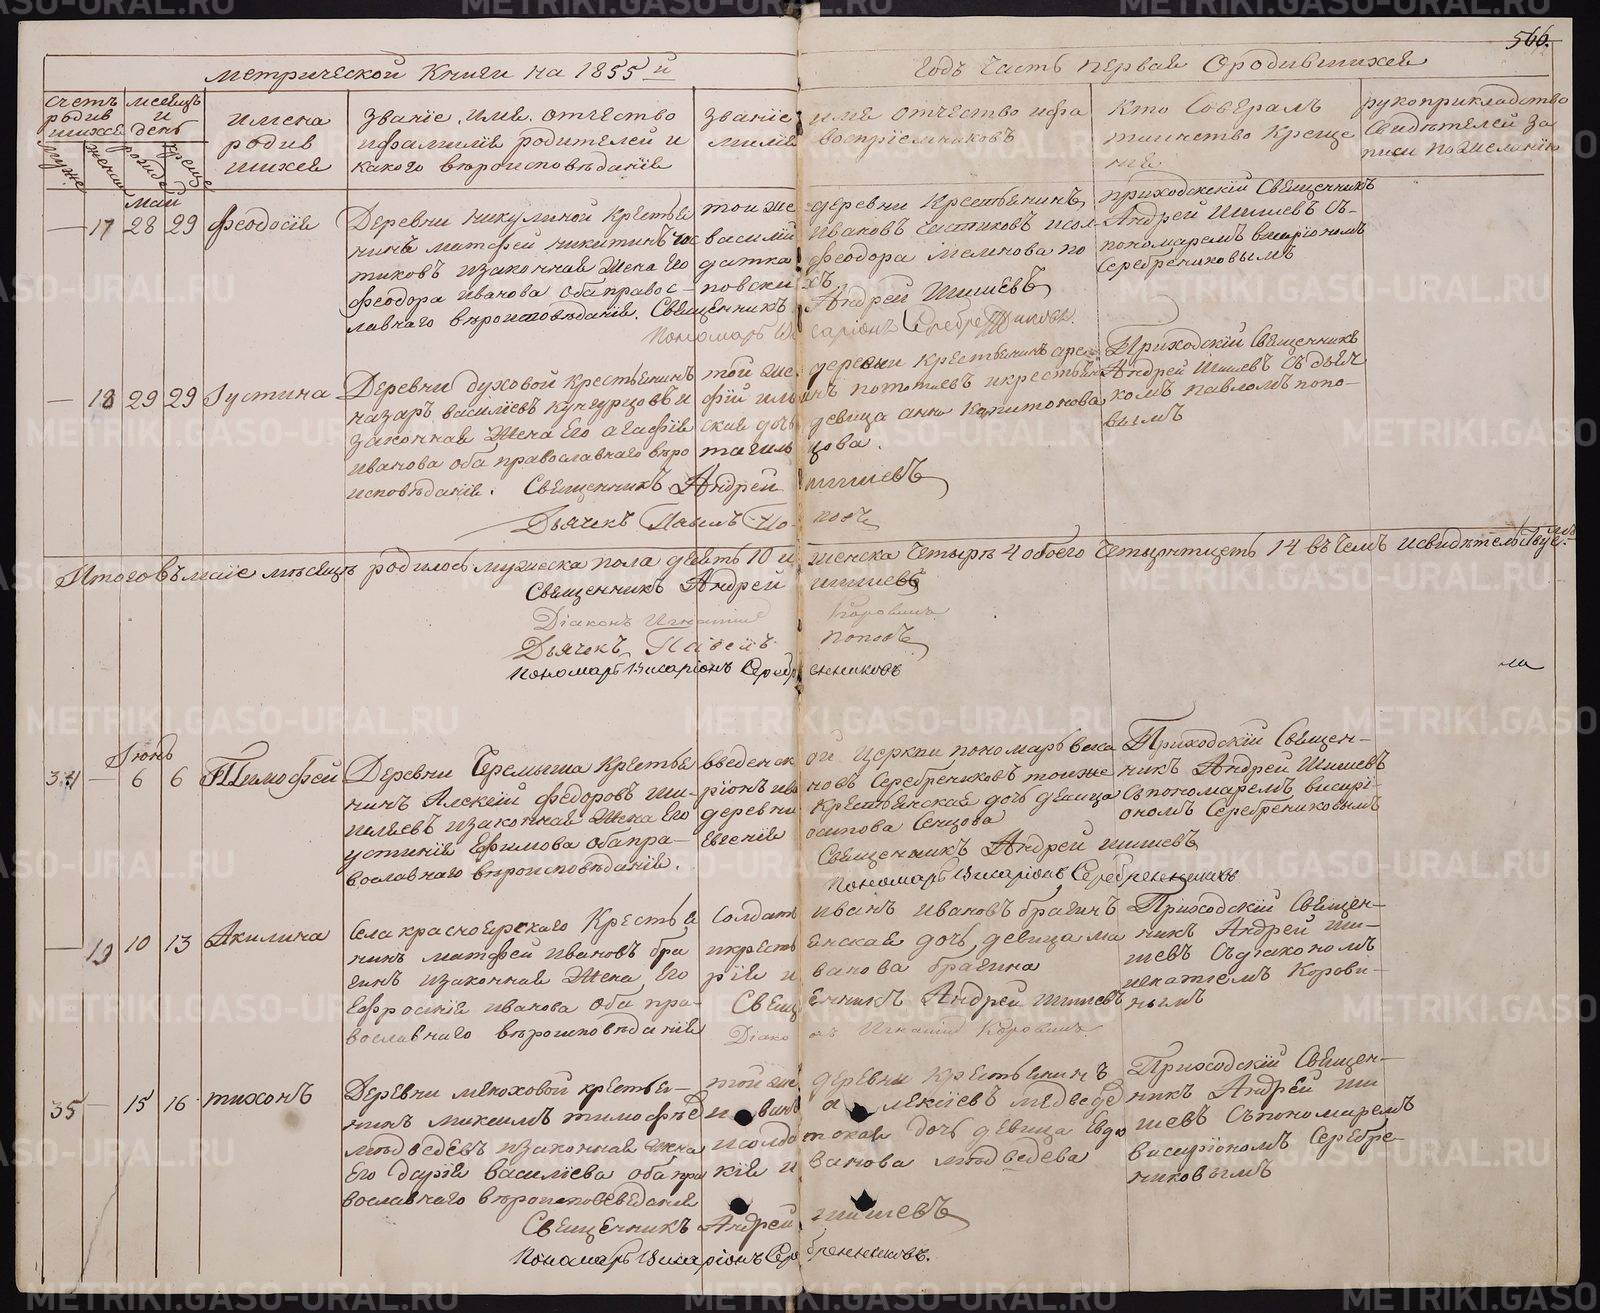 566.
Метрической Книги на 1855 й годъ Часть первая О родившихся
Счетъ родив шихся
муже женск
Месяцъ и день
рожде креще
имена родив шихся
Званіе, имя, отчество и фамилія родителей и какого вѣроисповѣданія
Званіе имя отчество и фа милія воспріемниковъ
Кто Совершалъ таинство Креще нія
рукоприкладство Свидѣтелей за писи по желанію
Май
— 17 28 29 Феодосія
Деревни Никулиной Крестья
нинъ Матфей Никитинъ Час
тиковъ и законная жена Его
Феодора Иванова оба правос-
лавнаго вѣроисповѣданія.
той же деревни Крестьянинъ
Василій Ивановъ Частиковъ и сол
датка Феодора по
повски хъ
приходскій Священникъ
Андрей Шишевъ съ
пономаремъ висаріономъ
Серебрениковымъ
Священникъ Андрей Шишевъ
Пономарь Висаріонъ Серебрениковъ
— 18 29 29 Іустина
Деревни Духовой крестьянинъ
Назаръ Василіевъ Кунгурцовъ и
законная жена Его Агафія
Иванова оба православнаго вѣро
исповѣданія.
той же деревни крестьянинъ
девица анна Капитонова
Приходскій Священникъ
Андрей Шишевъ съ дьяч
комъ павломъ попо-
вымъ
Священникъ Андрей Шишевъ
Дьячекъ Павелъ Поповъ
Итого въ маіе мѣсяцѣ родилось мужеска пола десять 10 и женска Четыре 4 обоего Четырнтцеть 14 въ чемъ и свидѣтельствуемъ
Священникъ Андрей Шишевъ
Діаконъ Игнатій Коровинъ
Дьячекъ Павелъ Поповъ
Пономарь Висаріонъ Серебренниковъ
Іюнь
34 — 6 6 Тимофей
Деревни Черемыша Крестья
нинъ Алексій Федоровъ Ши-
шляевъ и законная жена Его
устинія Ефимова оба пра-
вославнаго вѣроисповѣданія.
введенск ой церкви пономарь виса
ріонъ ива новъ Серебрениковъ той же
деревни Крестьянская дочь девица
Евгенія осипова Сенцова
Приходскій Священ-
никъ Андрей Шишевъ
съ пономаремъ висарі-
ономъ Серебрениковымъ
Священникъ Андрей Шишевъ
Пономарь Висаріонъ Серебренниковъ
— 19 10 13 Акилина
Села красноярскаго Крестья
нинъ матфей Ивановъ бра
гинъ и законная жена Его
Ефросинія иванова оба пра-
вославнаго вѣроисповѣданія
Солдатъ иванъ ивановъ брагинъ
и кресть янская дочь девица ма
рія и ванова брагина
Приходскій Священ-
никъ Андрей Ши-
шевъ съ діакономъ
игнатіемъ Корови-
нымъ
Священникъ Андрей Шишевъ
Діаконъ Игнатій Коровинъ
35 — 15 16 тихонъ
Деревни меноховой крестья-
нинъ Максимъ тимофѣе
мѣдведевъ и законная жена
Его дарія василіева оба пра
вославнаго вѣроисповеведанія
той же деревни крестьянинъ
иванъ алексіевъ медведе
и солда тская дочь девица Евдо
кія и ванова мѣдведева
Приходскій Священ-
никъ Андрей Ши
шевъ съ пономаремъ
висаріономъ Серебре-
никовымъ
Священникъ Андрей Шишевъ
Пономарь Висаріонъ Серебренниковъ.
METRIKI.GASO-URAL.RU